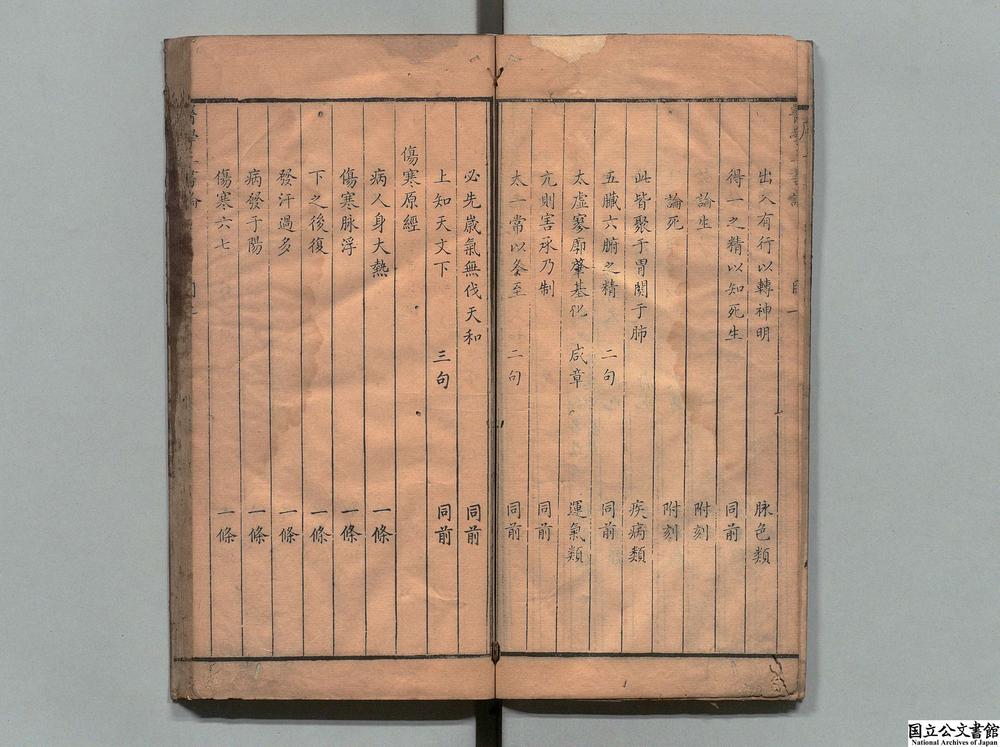 出入有行以轉神明 脉色類
得一之精以知死生 同前
論生 附刻
論死 附刻
此皆聚于胃関于肺 疾病類
五臓六腑之精 二句 同前
太虚寥廓肇基化 咸章 運氣類
亢則害承乃制 同前
太一常以冬至 二句 同前
必先歲氣無伐天和 同前
上知天文下 三句 同前
傷寒原經
病人身大熱 一條
傷寒脉浮 一條
下之後復 一條
發汗過多 一條
病發于陽 一條
傷寒六七 一條
国立公文書館
National Archives of Japan